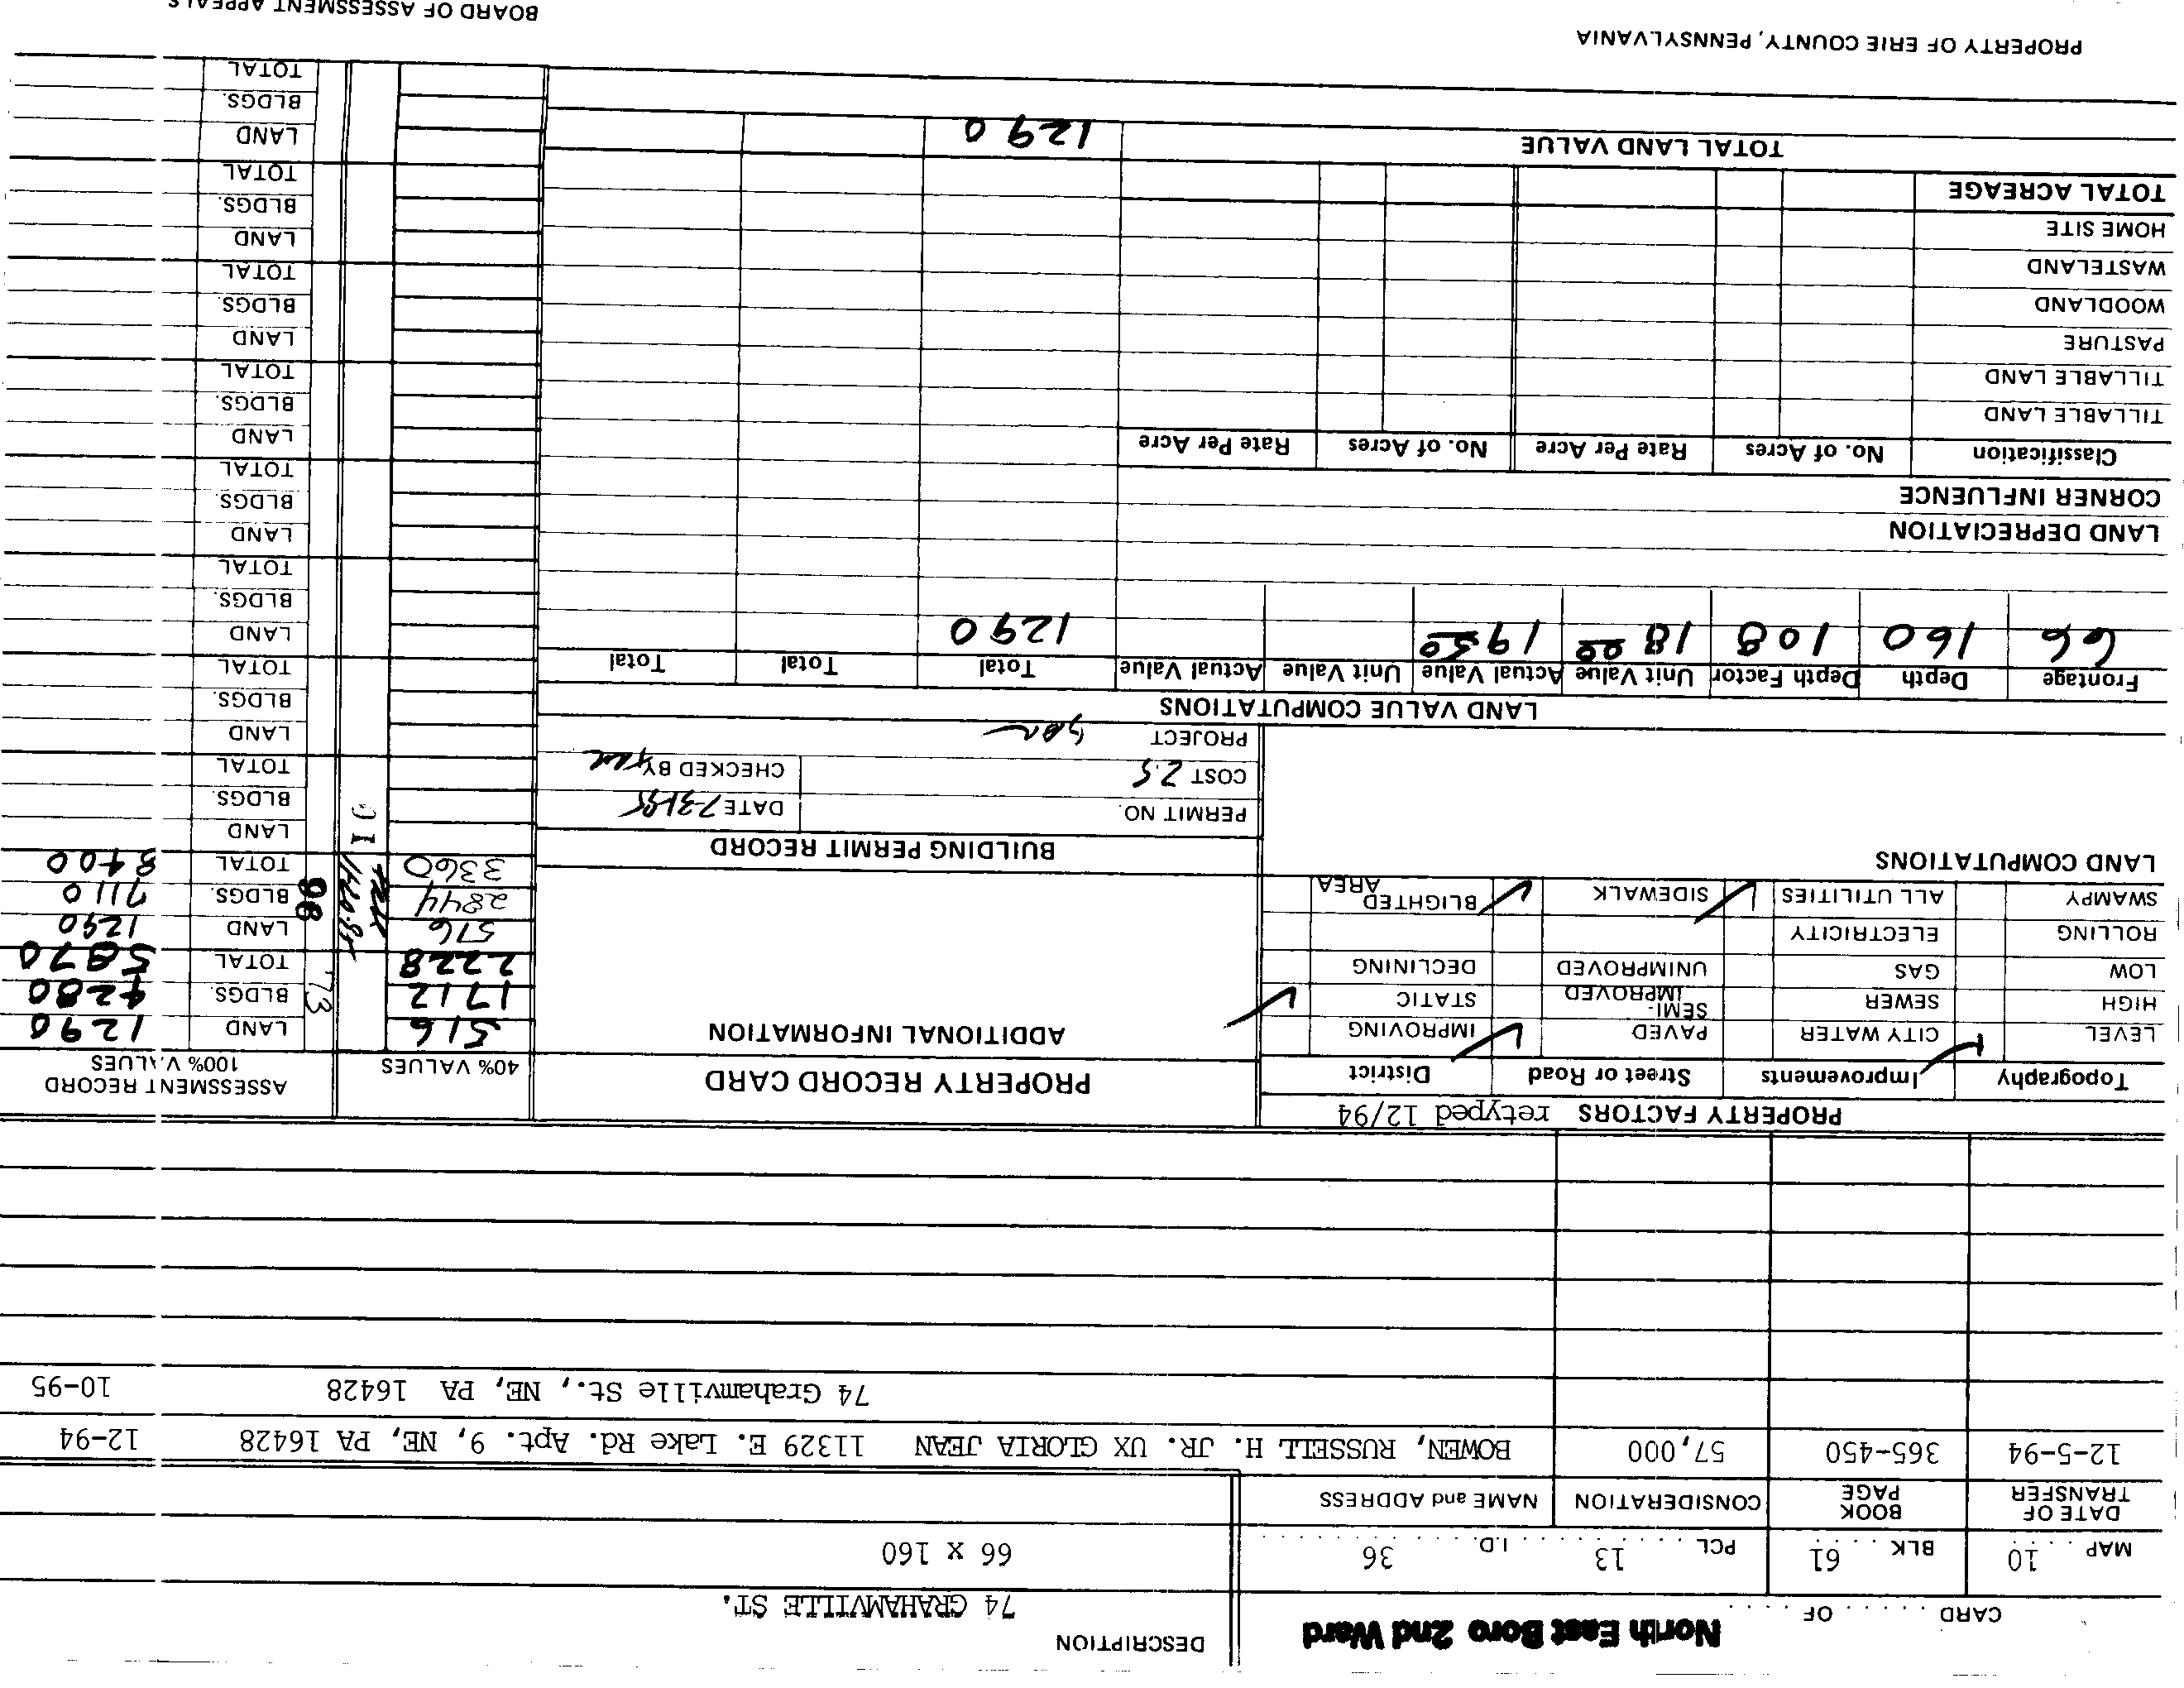 North East Boro 2nd Ward
CARD . . . . . . OF . . . . .
DESCRIPTION
74 GRAHAMVILLE ST.
MAP 10 BLK 61 PCL 13 I.D. 36
66 x 160
DATE OF TRANSFER BOOK PAGE CONSIDERATION NAME and ADDRESS
12-5-94 365-450 57,000 BOWEN, RUSSELL H. JR. UX GLORIA JEAN 11329 E. Lake Rd. Apt. 9, NE, PA 16428 12-94
74 Grahamville St., NE, PA 16428 10-95
PROPERTY FACTORS retyped 12/94
Topography Improvements Street or Road District
LEVEL ✓ CITY WATER PAVED ✓ IMPROVING
HIGH SEWER SEMI-IMPROVED STATIC ✓
LOW GAS UNIMPROVED DECLINING
ROLLING ELECTRICITY
SWAMPY ALL UTILITIES ✓ SIDEWALK ✓ BLIGHTED AREA
LAND COMPUTATIONS
PROPERTY RECORD CARD
ADDITIONAL INFORMATION
BUILDING PERMIT RECORD
PERMIT NO. DATE 7-31-95
COST 2.5 CHECKED BY
PROJECT
40% VALUES
ASSESSMENT RECORD
100% VALUES
516 '73 LAND 1290
1712 BLDGS. 4280
2228 TOTAL 5870
516 96 LAND 1290
2844 BLDGS. 7110
3360 TOTAL 8400
LAND
BLDGS.
TOTAL
LAND
BLDGS.
TOTAL
LAND
BLDGS.
TOTAL
LAND
BLDGS.
TOTAL
LAND
BLDGS.
TOTAL
LAND
BLDGS.
TOTAL
LAND
BLDGS.
TOTAL
LAND
BLDGS.
TOTAL
LAND VALUE COMPUTATIONS
Frontage Depth Depth Factor Unit Value Actual Value Unit Value Actual Value Total Total Total
66 160 108 18 00 19 50 1290
LAND DEPRECIATION
CORNER INFLUENCE
Classification No. of Acres Rate Per Acre No. of Acres Rate Per Acre
TILLABLE LAND
TILLABLE LAND
PASTURE
WOODLAND
WASTELAND
HOME SITE
TOTAL ACREAGE
TOTAL LAND VALUE 1290
PROPERTY OF ERIE COUNTY, PENNSYLVANIA
BOARD OF ASSESSMENT APPEALS